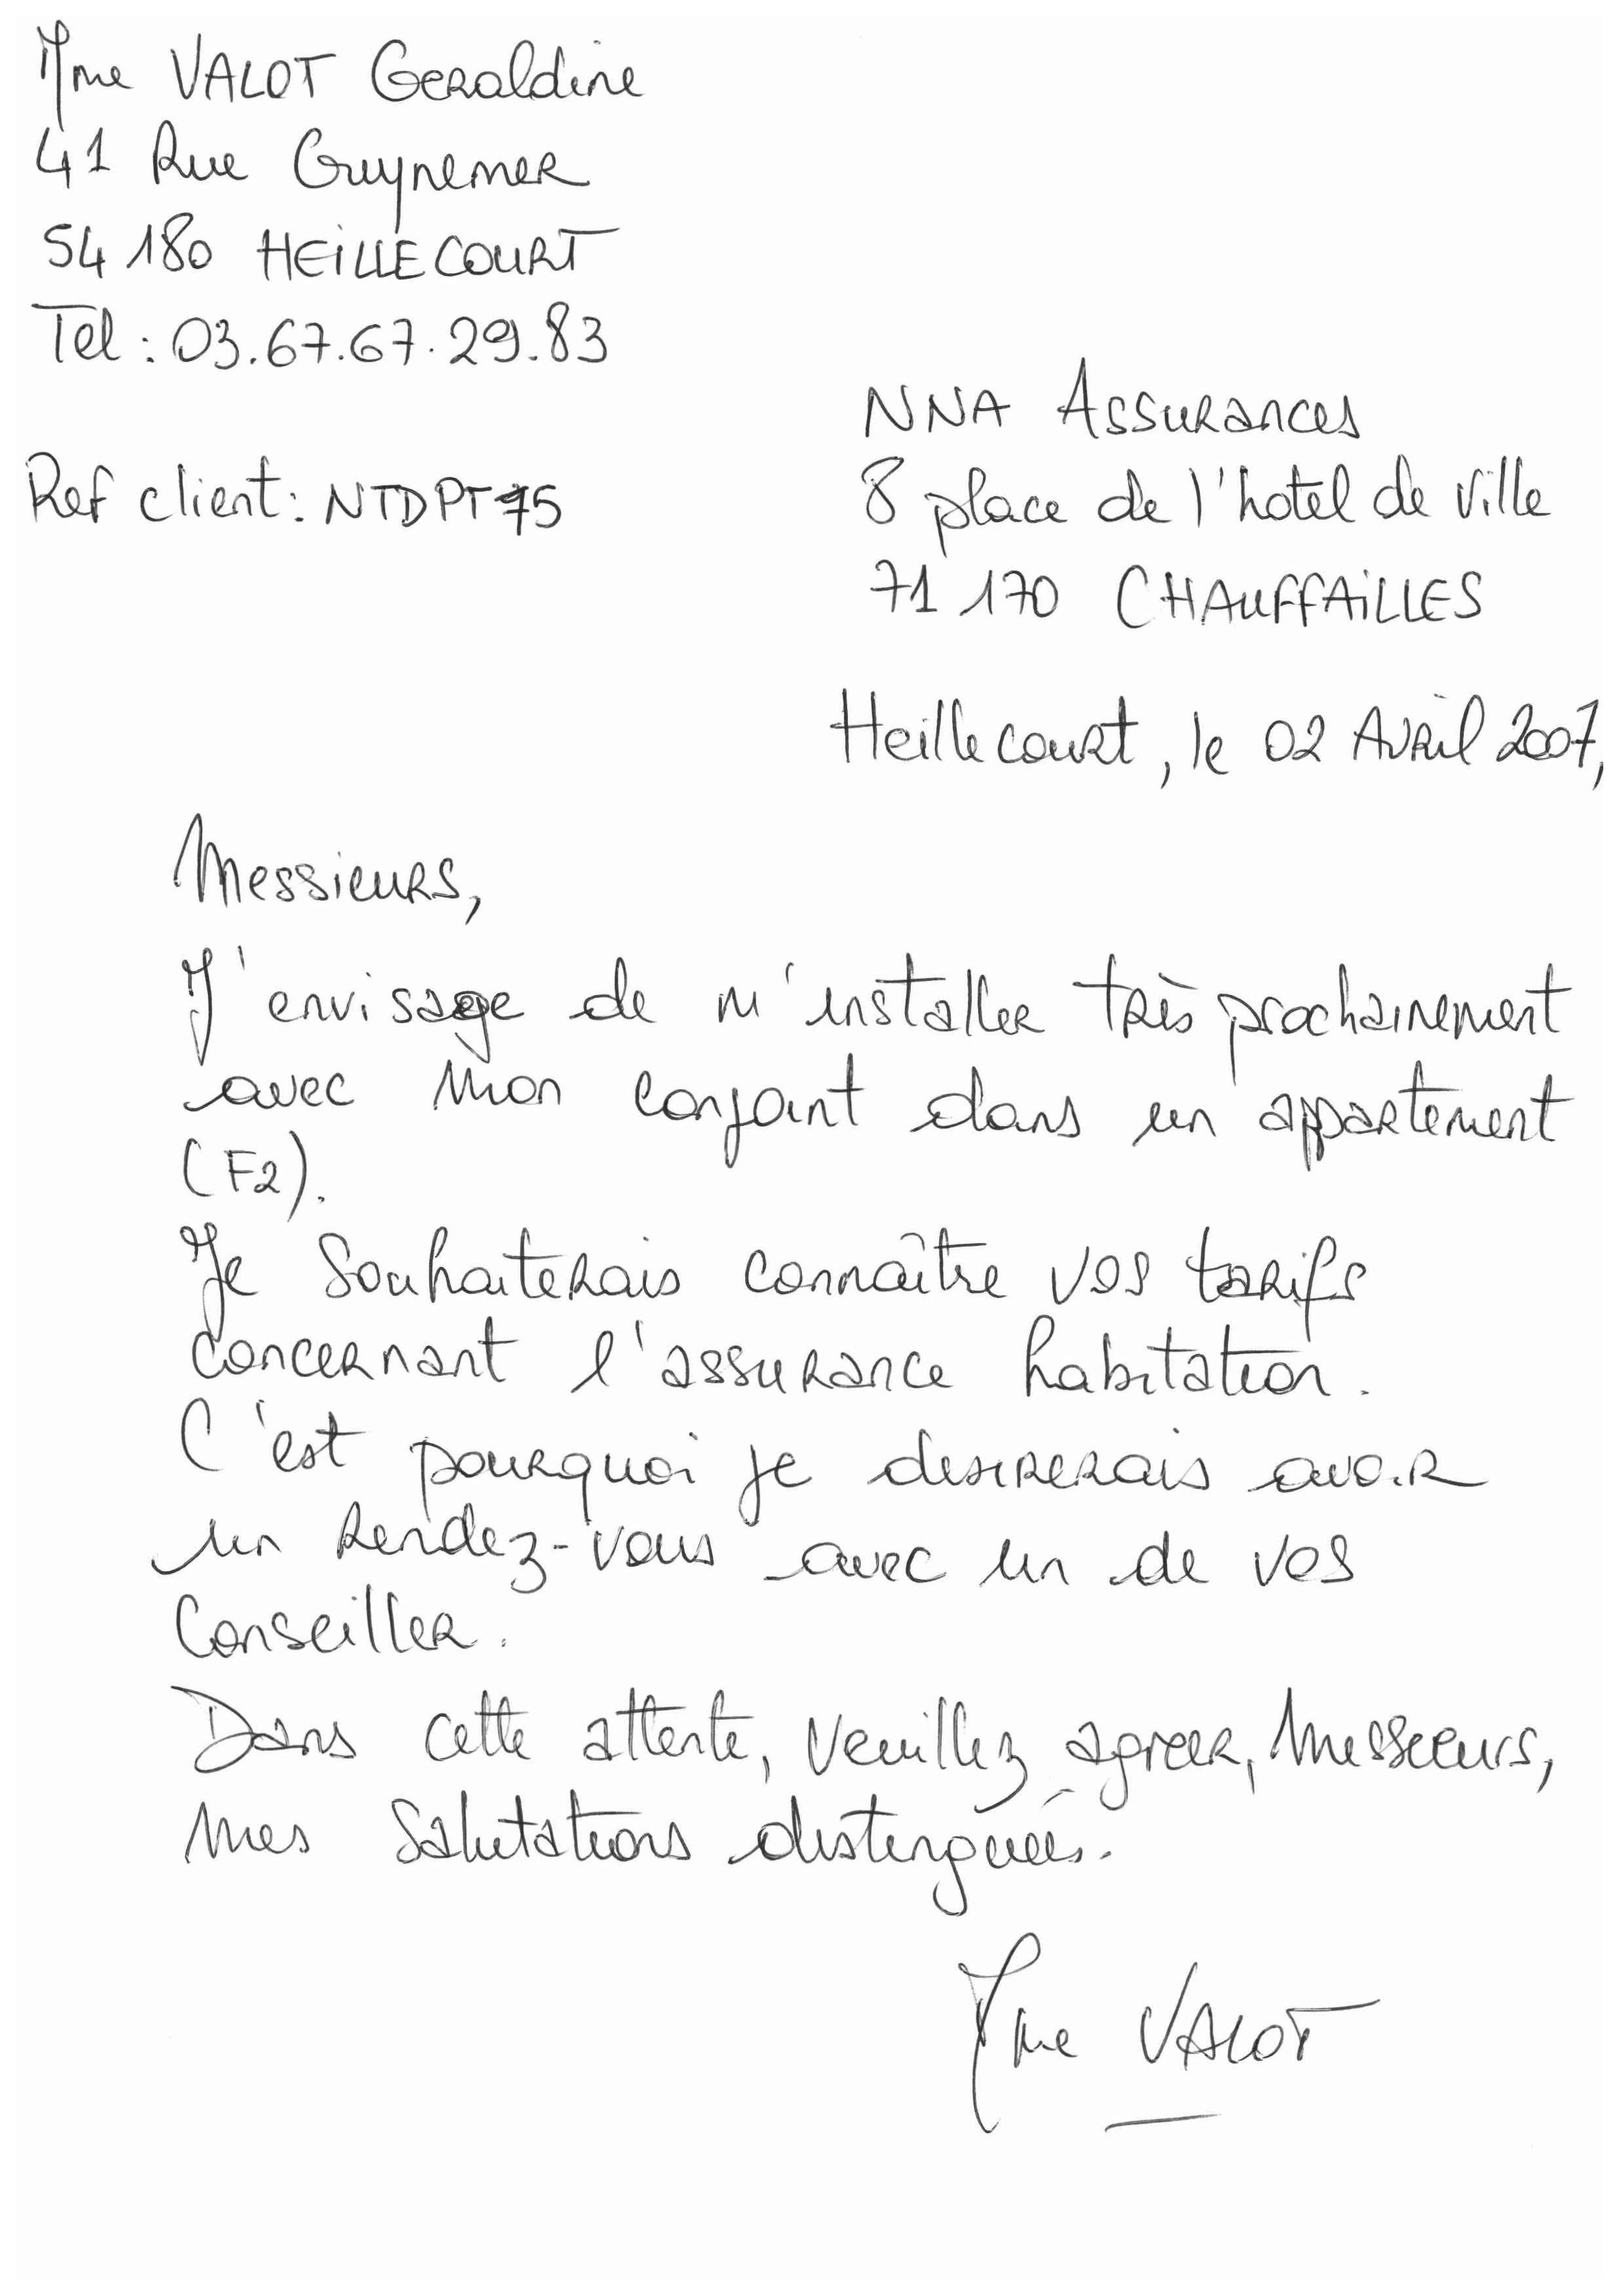 Mme VALOT Geraldine
41 Rue Guynemer
54 180 HEILLECOURT
Tel : 03.67.67.29.83
NNA Assurances
Ref client : NTDPT75
8 place de l'hotel de ville
71 170 CHAUFFAILLES
Heillecourt, le 02 Avril 2007,
Messieurs,
J'envisage de m'installer très prochainement
avec mon conjoint dans un appartement
(F2).
Je souhaiterais connaître vos tarifs
concernant l'assurance habitation.
C'est pourquoi je desirerais avoir
un rendez-vous avec un de vos
Conseiller.
Dans cette attente, veuillez agreer, Messieurs,
mes salutations distinguées.
Mme VALOT